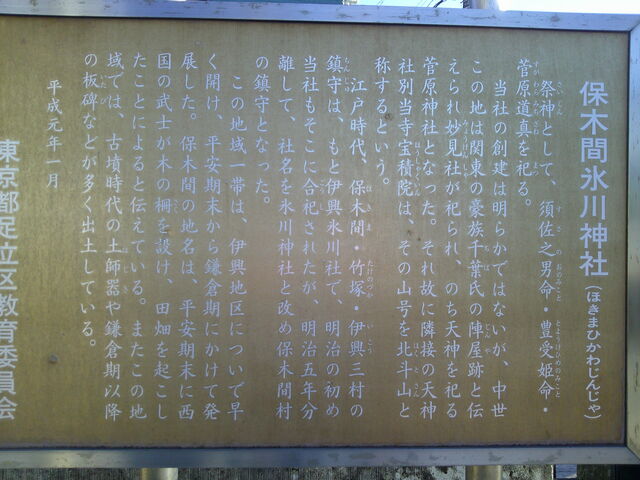 保木間氷川神社(ほきまひかわじんじゃ)
祭神として、須佐之男命・豊受姫命・
菅原道真を祀る。
当社の創建は明らかではないが、中世
この地は関東の豪族千葉氏の陣屋跡と伝
えられ妙見社が祀られ、のち天神を祀る
菅原神社となった。それ故に隣接の天神
社別当寺宝積院は、その山号を北斗山と
称するという。
江戸時代、保木間・竹塚・伊興三村の
鎮守は、もと伊興氷川神社で、明治の初め
当社もそこに合祀されたが、明治五年分
離して、社名を氷川神社と改め保木間村
の鎮守となった。
この地域一帯は、伊興地区についで早
く開け、平安期末から鎌倉期にかけて発
展した。保木間の地名は、平安期末に西
国の武士が木の柵を設け、田畑を起こし
たことによると伝えている。またこの地
域では、古墳時代の土師器や鎌倉期以降
の板碑などが多く出土している。
平成元年一月
東京都足立区教育委員会